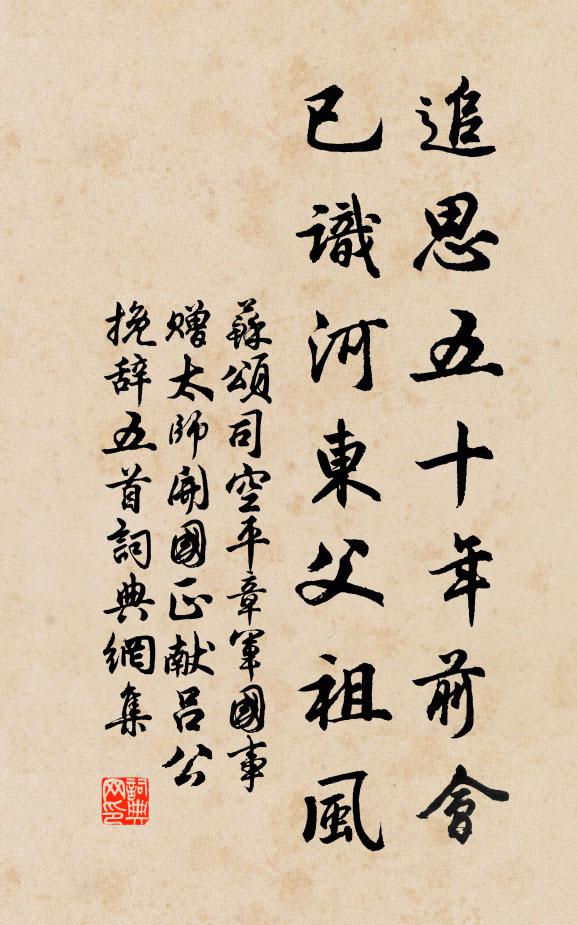 追思五十年前會
已識河東父祖風
蘇頌司空平章軍國事
贈太師開國正献呂公
挽辞五首詞典網集
詞典网印